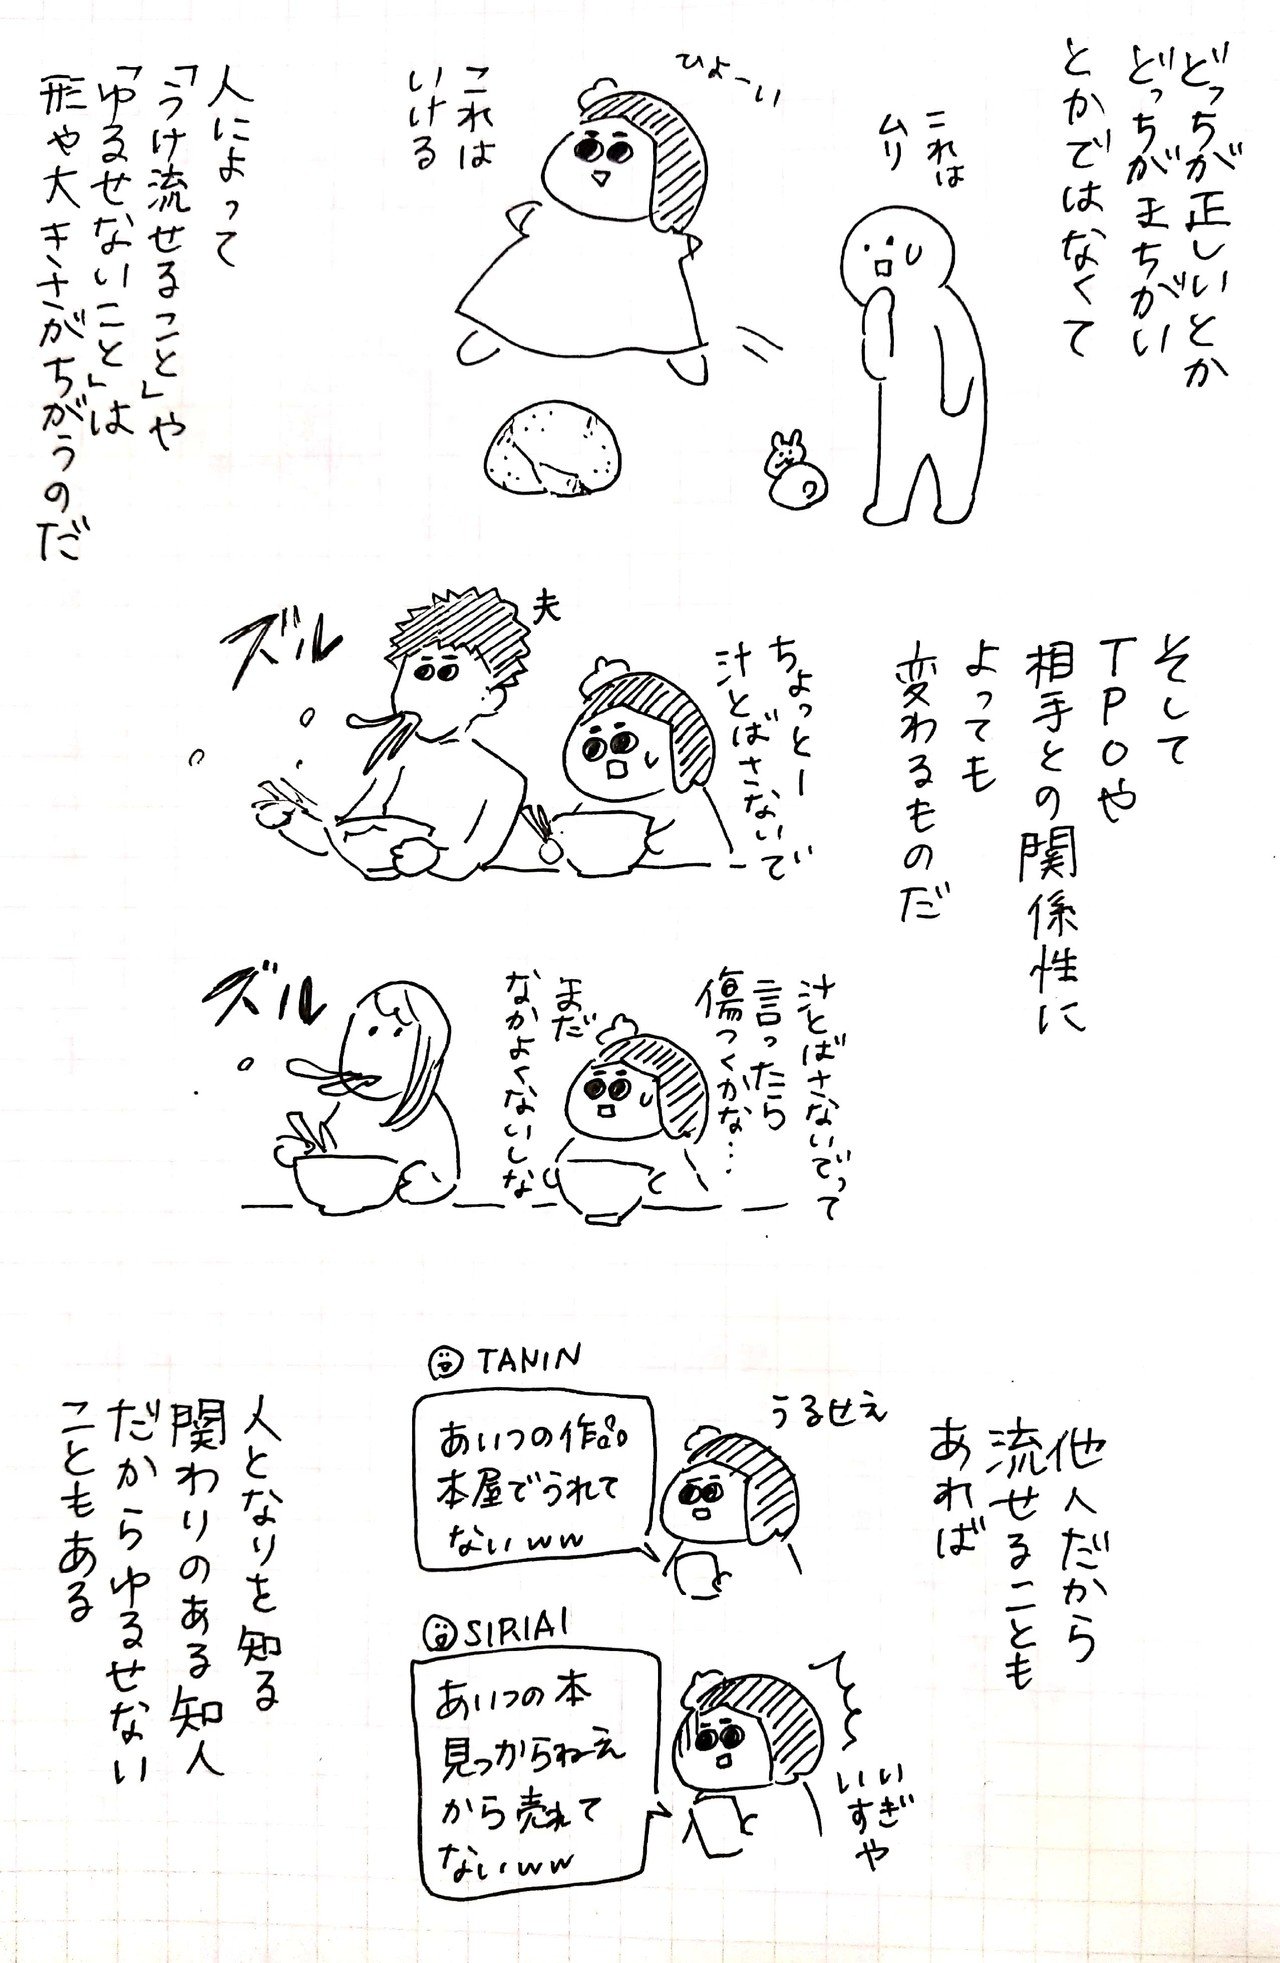 どっちが正しいとか
どっちがまちがい
とかではなくて
これは
ムリ
ひょーい
これは
いける
人によって
「うけ流せること」や
「ゆるせないこと」は
形や大きさがちがうのだ
そして
TPOや
相手との関係性に
よっても
変わるものだ
ちょっとー
汁とばさないで
夫
ズル
汁とばさないでって
言ったら
傷つくかな…
まだ
なかよくないしな
ズル
他人だから
流せることも
あれば
うるせえ
TANIN
あいつの作品
本屋でうれて
ないww
いいすぎや
SIRIAI
あいつの本
見つからねーえ
から売れて
ないww
人となりを知る
関わりのある知人
だからゆるせない
こともある